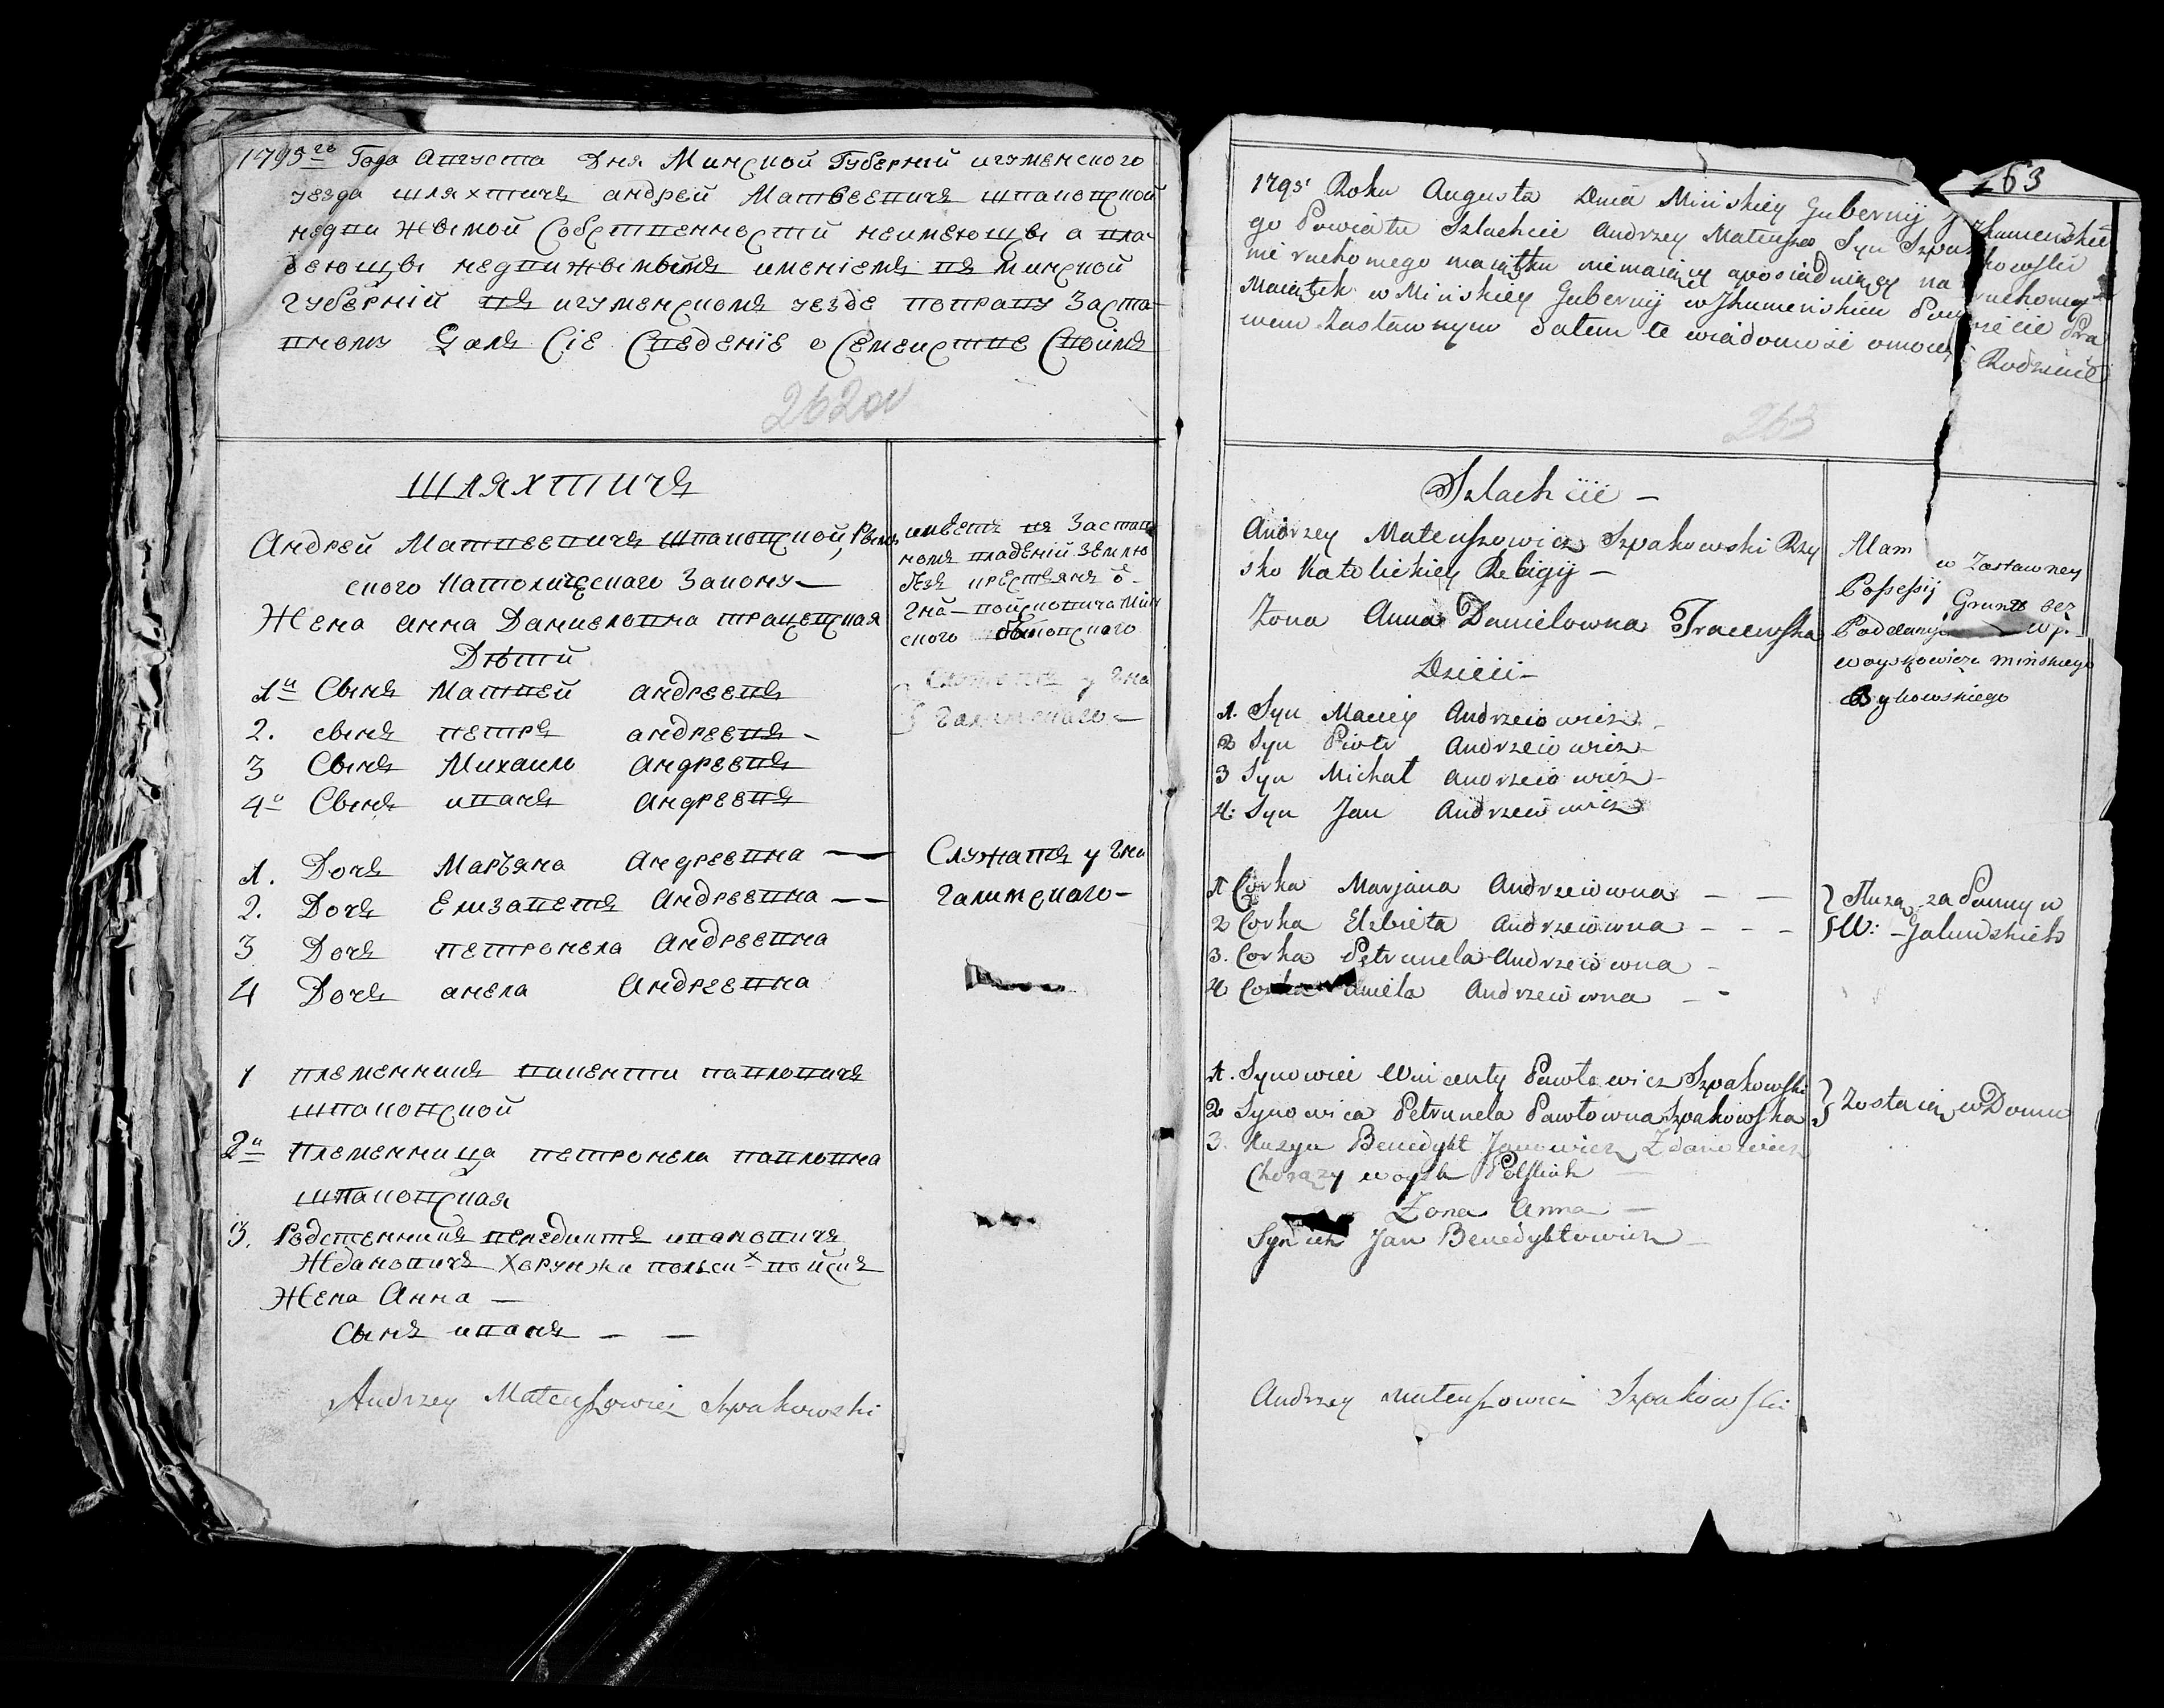 1795го Года Августа Дня Минской Губерній игуменского
уезда шляхтичъ андрей Матвеевичъ шпаковской
недви жвимой Собственности неимеющві а вла-
деющві недвижвімымъ именіемъ въ минской
губерній въ игуменскомъ уезде поправу Заста-
вному Далъ Сіе Сведеніе о Семействе Своимъ
262ov
шляхтичъ
Андрей Матвеевичъ шпаковской, Римъ
ского католическаго Закону —
Жена анна Даниеловна трацевская
Дѣти
1й Сынъ Матвей андреевъ
2. сынъ петръ андреевъ -
3 Сынъ Михаилъ Андреевъ
4й Сынъ иванъ Андреевъ
1. Дочъ Марьяна Андреевна —
2. Дочъ Елизаветъ Андреевна — —
3 Дочъ петронела Андреевна
4 Дочъ анела Андреевна
1 племенникъ викенти павловичъ
шпаковской
2й племенница петронела павловна
шпаковская
3. Родственникъ венедиктъ ивановичъ
Ждановичъ Хорунжи польских войскъ
Жена Анна —
Сынъ иванъ — —
Andrzey Mateuszowicz Szpakowski
имѣетъ въ Застав
номъ владеній землю
безъ крестьянъ
гна войсковича мин
ского быковского
Служатъ у гна
галинского —
Служатъ у гна
галинского —
263
1795 Roku Augusta Dnia Mińskiey Gubernij Jhumeńskie
go Powiatu Szlachcic Andrzey Mateusza Syn Szpakowski
nie ruchomego maiątku niemaiący aposiadaiący na ruchomy
Maiątek w Mińskiey Gubernij w Jhumeńskim Powiecie Pra
wem Zastawnym Dałem te wiadomość omoiey Rodzinie
263
Szlachcic —
Andrzey Mateuszowicz Szpakowski Rzy
sko Katolickiey Religij —
Zona Anna Danielowna Tracewska
Dzieci —
1. Syn Maciey Andrzeiowicz —
2 Syn Piotr Andrzeiowicz —
3 Syn Michał Andrzeiowicz —
4. Syn Jan Andrzeiowicz
1 Corka Marjana Andrzeiowna — —
2 Corka Elzbieta Andrzeiowna — — —
3. Corka Petrunela Andrzeiowna —
4 Corka Aniela Andrzeiowna — -
1. Synowiec Wincenty Pawłowicz Szpakowski
2 Synowica Petrunela Pawłowna Szpakowska
3. Kuzyn Benedykt Janowicz Zdanowicz
Chorązy woysk Polskich —
Zona Anna —
Syn ich Jan Benedyktowicz —
Andrzey Mateuszowicz Szpakowski
Mam w Zastawney
Possessij Grunt bez
Poddanych w p.
woyskowicza mińskiego
Bykowskiego
Służą za Panny u
W: — Galinskich
Zostaią w Domu